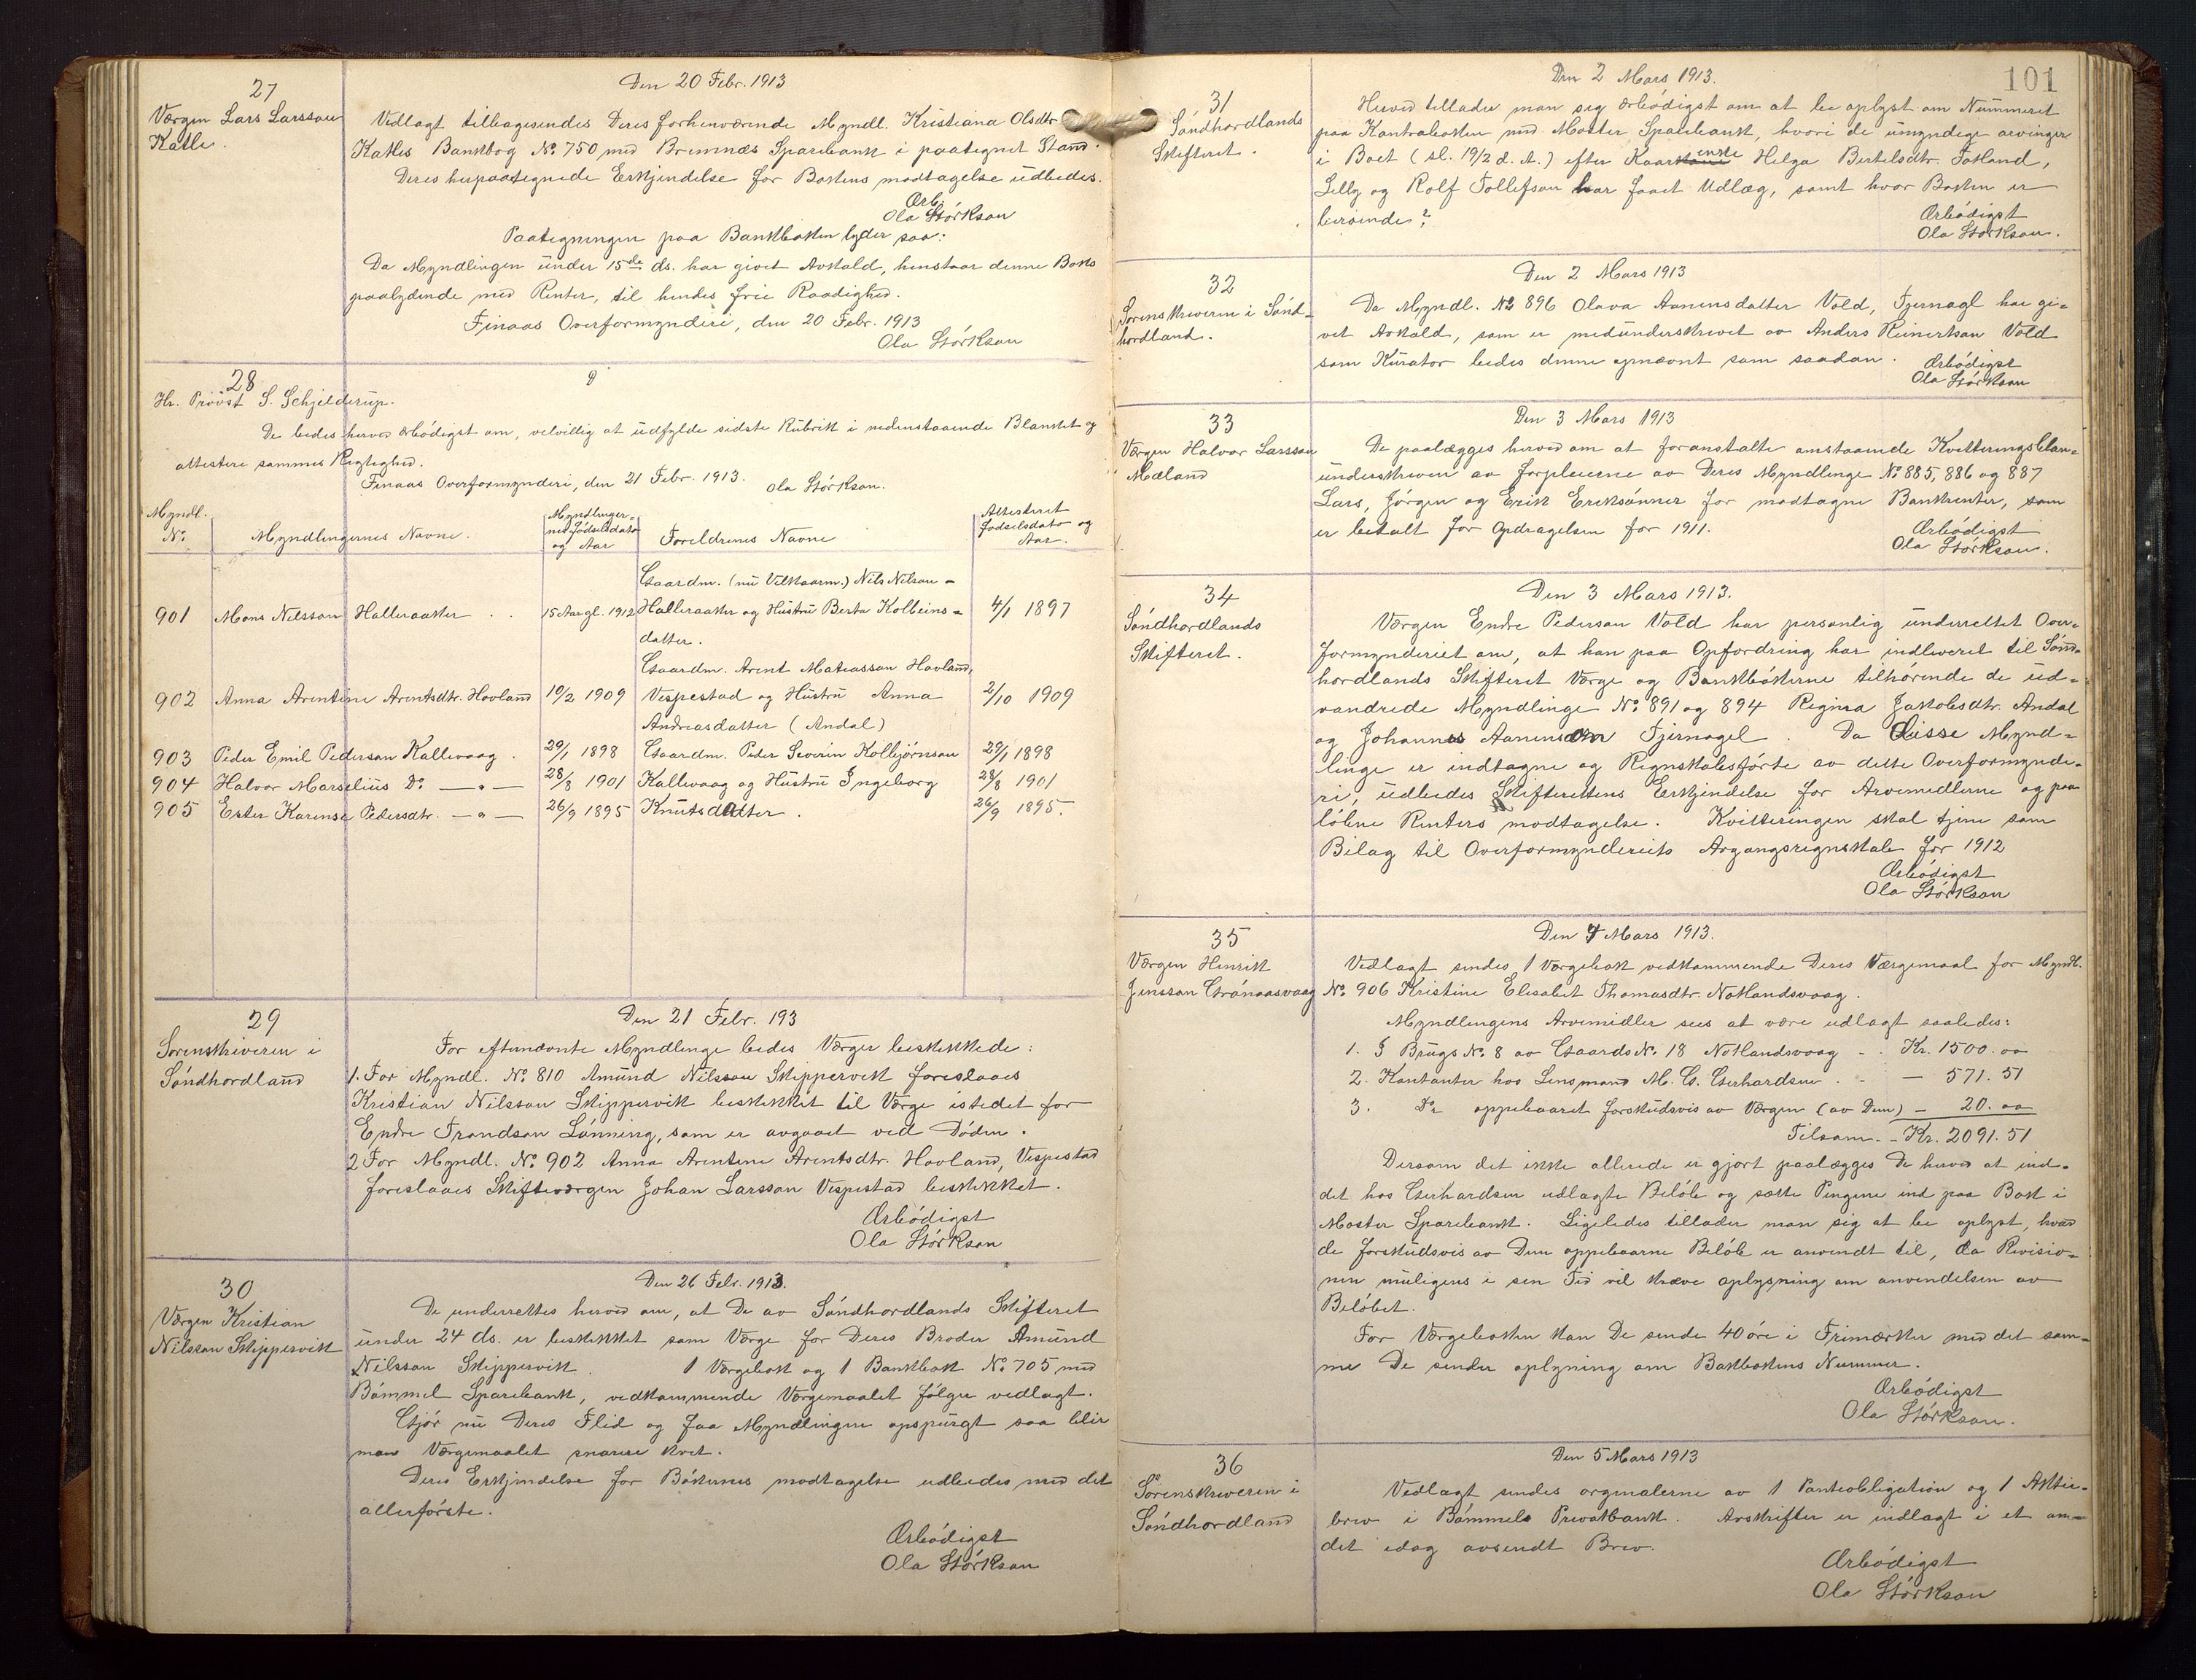 27
Værgen Lars Larsson
Katle.
Den 20 Febr. 1913
Vedlagt tilbagesendes Deres forhenværende Myndl. Kristiana Olsdtr
Katles Bankbog No. 750 med Bremnæs Sparebank i paategnet Stand.
Deres herpaategnede Erkjendelse for Bokens modtagelse udbedes.
Ærb.
Ola Størkson
Paategningen paa Bankboken lyder saa:
Da Myndlingen under 15de ds. har givet Avkald, henstaar denne Boks
paalydende med Renter, til hendes frie Raadighed.
Finaas Overformynderi, den 20 Febr. 1913
Ola Størkson
28
Hr. Provst S. Schjelderup.
De bedes herved ærbødigst om, velvillig at udfylde sidste Rubrik i nedenstaaende Blanket og
attestere sammes Rigtighed.
Finaas Overformynderi, den 21 Febr. 1913. Ola Størkson.
Myndl. No. Myndlingernes Navne. Myndlinger- nes Fødselsdato og Aar Foreldrenes Navne Attesteret fødselsdato og Aar.
Gaardm. (nu Velkaarm.) Nils Nilson -
901 Mons Nilsson Halleraaker . . 15 Aar gl. 1912 Halleraaker og Hustru Berta Kolbeins- 4/1 1897
datter.
Gaardm. Arent Matiasson Hovland,
902 Anna Arentine Arentsdtr. Hovland 10/2 1909 Vespestad og Hustru Anna 2/10 1909
Andreasdatter (Andal)
903 Peder Emil Pederson Kallevaag . 29/1 1898 Gaardm. Peder Severin Kolbjørnson 29/1 1898
904 Halvor Marselius Do. — " — 28/8 1901 Kallevaag og Hustru Ingeborg 28/8 1901
905 Ester Karense Pedersdtr. — " — 26/9 1895 Knutsdatter . 26/9 1895.
29
Sorenskriveren i
Søndhordland
Den 21 Febr. 193
For efternævnte Myndlinge bedes Værger beskikkede:
1. For Myndl. No. 810 Amund Nilsson Skippervik foreslaaes
Kristian Nilsson Skippervik beskikket til Værge istedet for
Endre Trondson Lønning, som er avgaaet ved Døden.
2 For Myndl. No. 902 Anna Arentine Arentsdtr. Hovland, Vespestad
foreslaaes Skifteværgen Johan Larsson Vespestad beskikket.
Ærbødigst
Ola Størkson
30
Værgen Kristian
Nilsson Skippervik
Den 26 Febr. 1913.
De underrettes herved om, at De av Søndhordlands Skifteret
under 24 ds. er beskikket som Værge for Deres Broder Amund
Nilsson Skippervik. 1 Værgebok og 1 Bankbok No. 705 med
Bømmel Sparebank, vedkommende Værgemaalet følger vedlagt.
Gjør nu Deres Flid og faa Myndlingen opspurgt saa blir
man Værgemaalet snarere kvit.
Deres Erkjendelse for Bøkernes modtagelse udbedes med det
allerførste.
Ærbødigst
Ola Størkson
101
31
Søndhordlands
Skifteret.
Den 2 Mars 1913.
Herved tillader man sig ærbødigst om at be oplyst om Nummeret
paa Kontraboken med Moster Sparebank, hvori de umyndige arvinger
i Boet (sl. 19/2 d. A.) efter Kaarenke Helga Bertelsdtr. Totland,
Lelly og Rolf Tollefson har faaet Udlæg, samt hvor Boken er
beroende?
Ærbødigst
Ola Størkson.
32
Sorenskriveren i Sønd-
hordland.
Den 2 Mars 1913
Da Myndl. No 896 Olava Aanensdatter Vold, Tjernagl har gi-
vet Avkald, som er medunderskrevet av Anders Reinertson Vold
som Kurator bedes denne opnævnt som saadan.
Ærbødigst
Ola Størkson
33
Værgen Halvor Larsson
Mæland
Den 3 Mars 1913
De paalægges herved om at foranstalte omstaaende Kvitteringsblan-
underskreven av forpleierne av Deres Myndlinge No 885, 886 og 887
Lars, Jørgen og Erik Ereksønner for modtagne Bankrenter, som
er betalt for Opdragelsen for 1911.
Ærbødigst
Ola Størkson.
34
Søndhordlands
Skifteret.
Den 3 Mars 1913.
Værgen Endre Pederson Vold har personlig underrettet Over-
formynderiet om, at han paa Opfordring har indleveret til Sønd-
hordlands Skifteret Værge og Bankbøkerne tilhørende de ud-
vandrede Myndlinge No. 891 og 894 Regina Jakobsdtr. Andal
og Johannes Aanenson Tjernagel. Da Disse Mynd-
linge er indtagne og Regnskabsførte av dette Overformynde-
ri, udbedes Skifterettens Erkjendelse for Arvemidlerne og paa
løbne Renters modtagelse. Kvitteringen skal tjene som
Bilag til Overformynderiets Avgangsregnskab for 1912
Ærbødigst
Ola Størkson
35
Værgen Henrik
Jensson Grønaasvaag
Den 4 Mars 1913.
Vedlagt sendes 1 Værgebok vedkommende Deres Værgemaal for Myndl.
No. 906 Kristine Elesabet Thomasdtr. Notlandsvaag.
Myndlingens Arvemidler sees at være udlagt saaledes:
1. I Brugs No. 8 av Gaards No. 18 Notlandsvaag - . Kr. 1500.00
2. Kontanter hos Lensmand M. G. Gerhardsen . - — 571.51
3. Do. oppebaaret forskudsvis av Værgen (av Dem) — 20.00
Tilsam. - Kr. 2091.51
Dersom det ikke allerede er gjort paalægges De herved at ind-
det hos Gerhardsen udlagte Beløb og sætte Pengene ind paa Bok i
Moster Sparebank. Ligeledes tillader man sig at be oplyst, hvad
de forskudsvis av Dem oppebaarne Beløb er anvendt til, da Revisio-
nen muligens i sin Tid vil kræve oplysning om anvendelsen av
Beløbet.
For Værgeboken kan De sende 40 øre i Frimærker med det sam-
me De sender oplyning om Bakbokens Nummer.
Ærbødigst
Ola Størkson.
36
Sorenskriveren i
Søndhordland
Den 5 Mars 1913
Vedlagt sendes orginalerne av 1 Panteobligation og 1 Aktie-
brev i Bømmels Privatbank. Avskrifter er indlagt i et an-
det idag avsendt Brev.
Ærbødigst
Ola Størkson